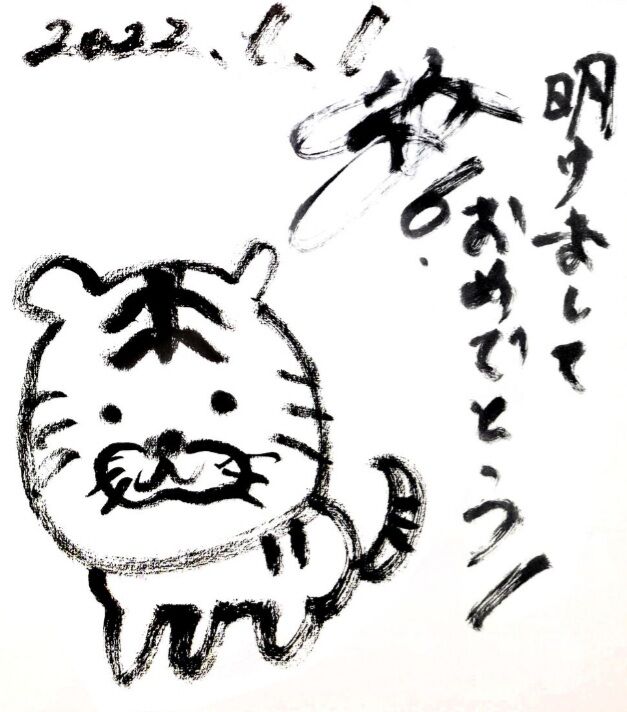 2022.1.1
明けまして
おめでとう!